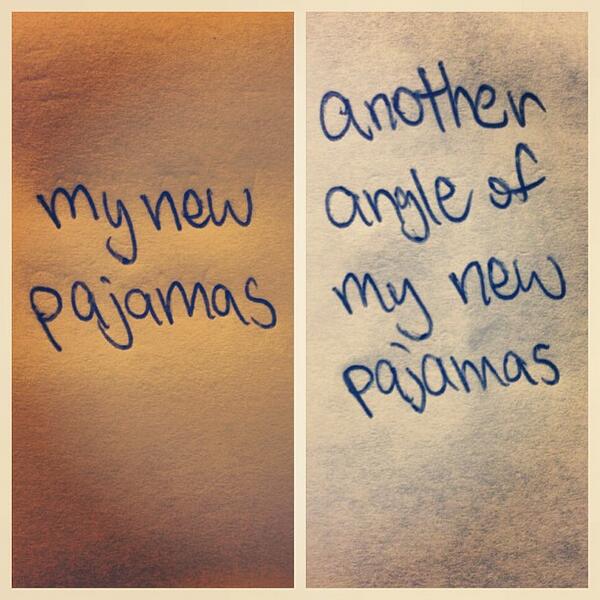 my new
pajamas
another
angle of
my new
pajamas